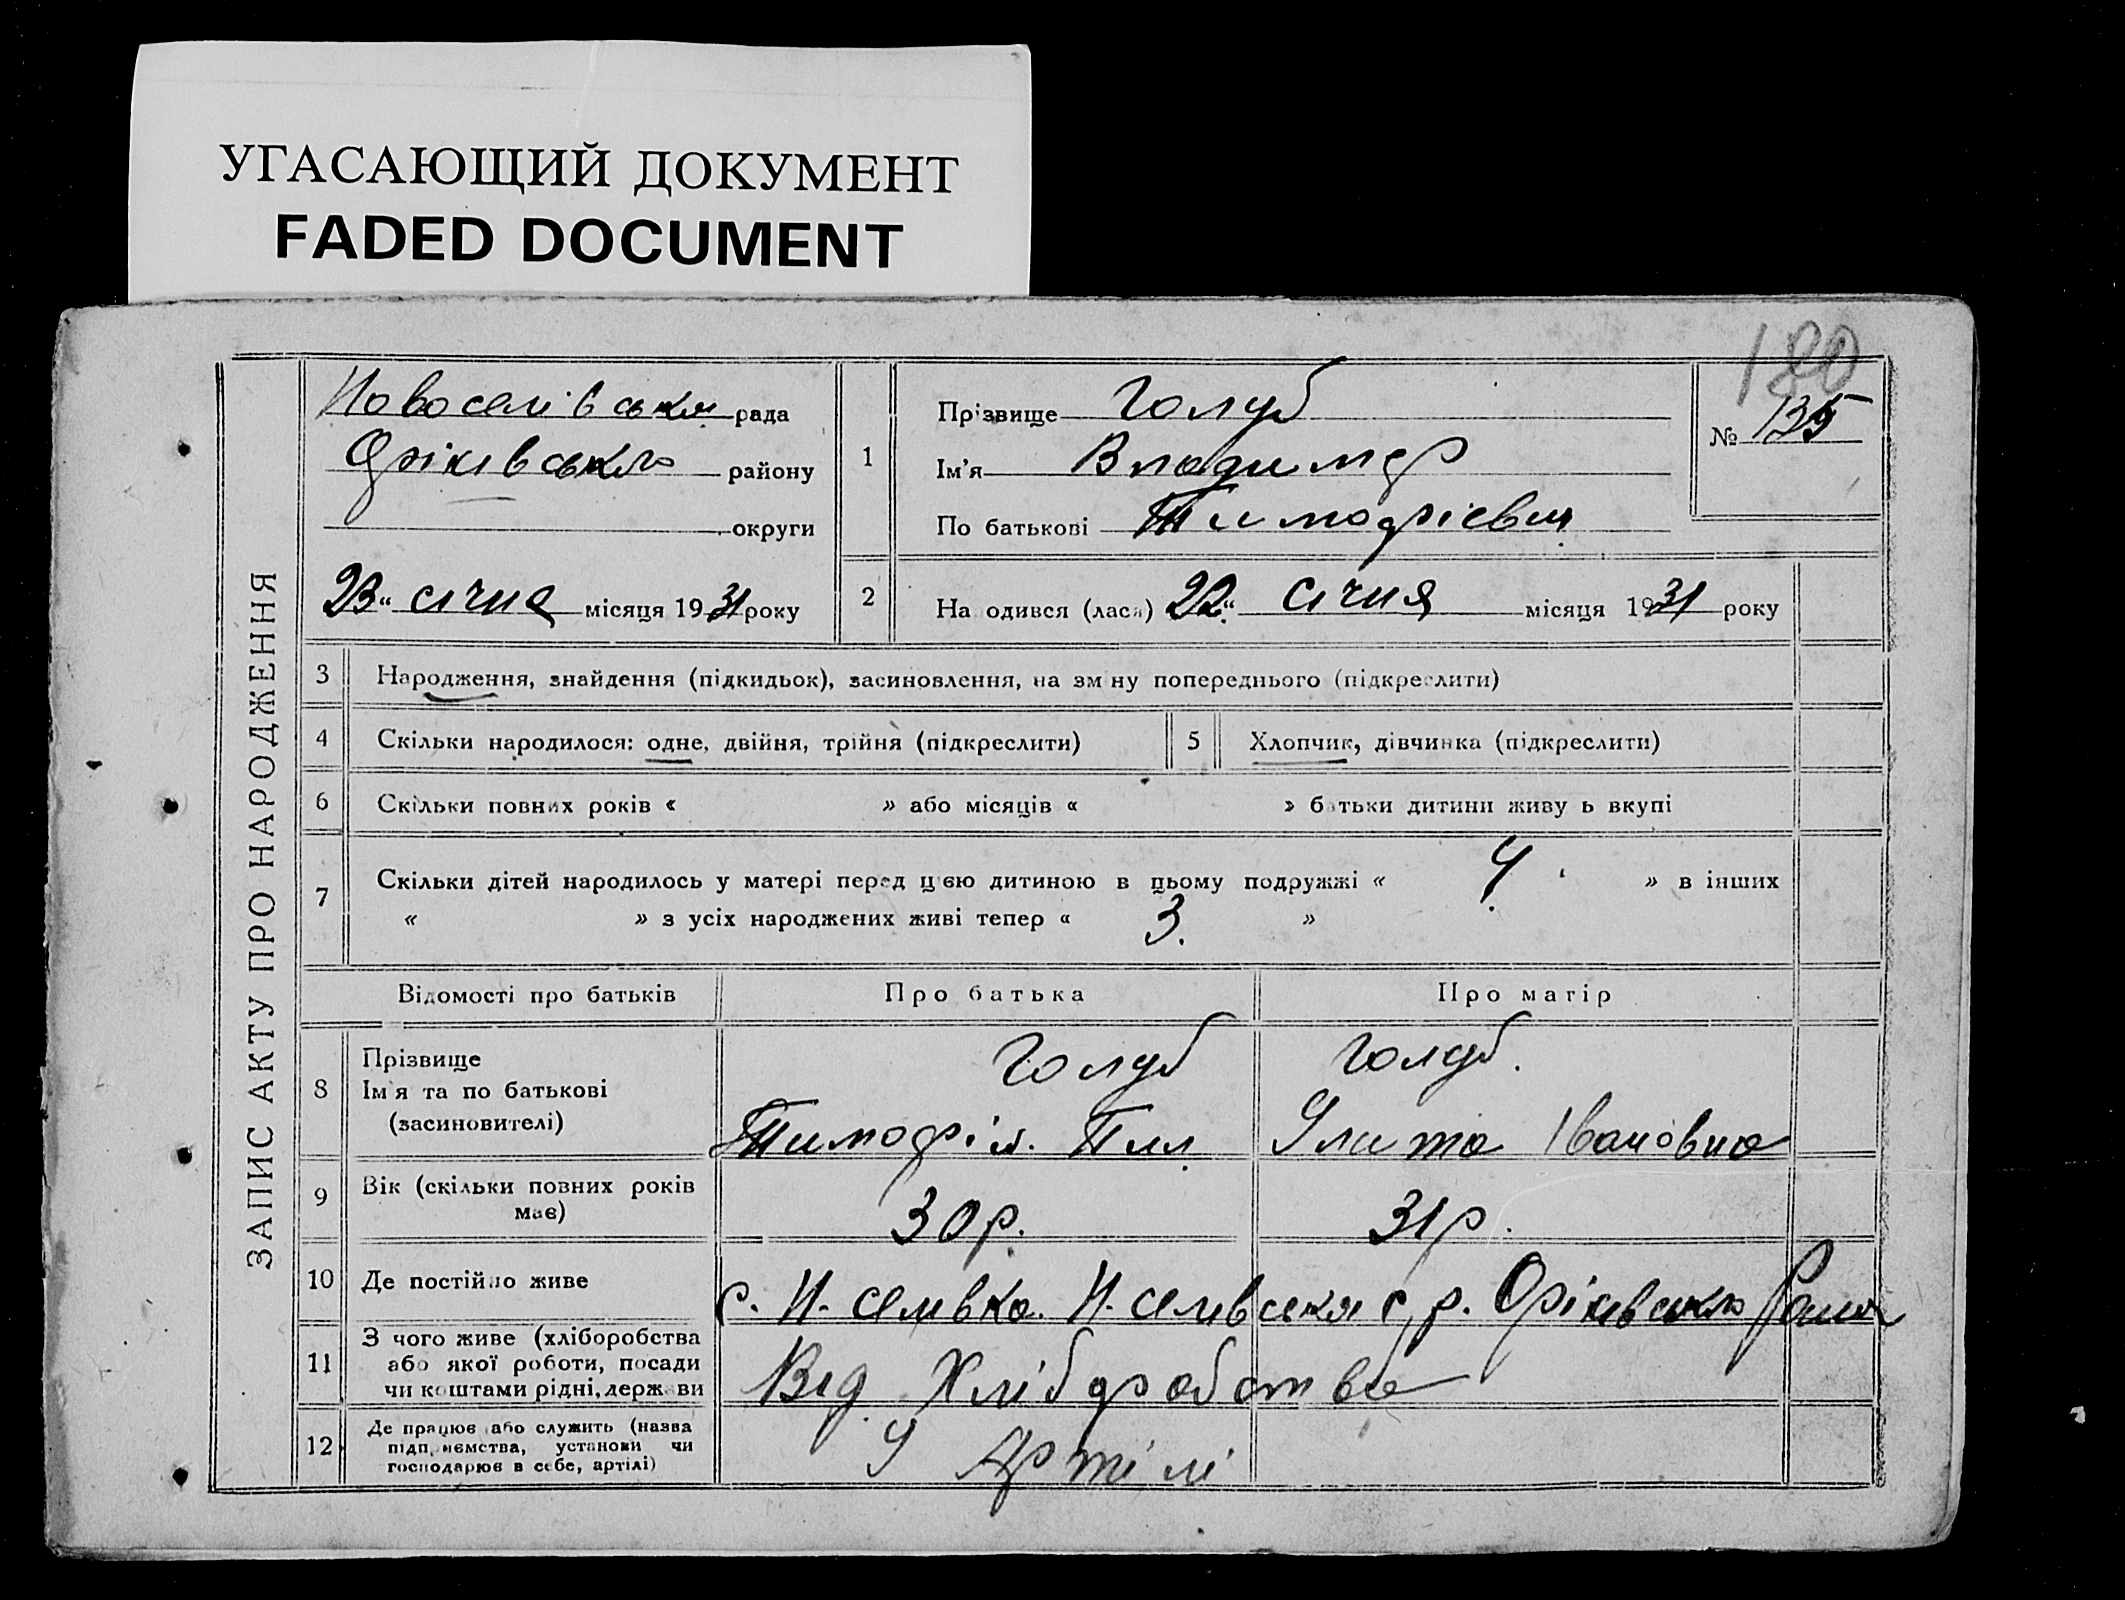 УГАСАЮЩИЙ ДОКУМЕНТ
FADED DOCUMENT
180
ЗАПИС АКТУ ПРО НАРОДЖЕННЯ
Новоселівська рада
Оріхівського району
округи
23 „ січня місяця 1931 року
1
Прізвище Голуб
Ім'я Владимер
По батькові Тимофієвич
№ 135
2 На одився (лася) 22 „ січня місяця 1931 року
3 Народження, знайдення (підкидьок), засиновлення, на зм ну попереднього (підкреслити)
4 Скільки народилося: одне, двійня, трійня (підкреслити)
5 Хлопчик, дівчинка (підкреслити)
6 Скільки повних років « » або місяців « » батьки дитини живу ь вкупі
7 Скільки дітей народилось у матері перед цією дитиною в цьому подружжі « 4 » в інших
« » з усіх народжених живі тепер « 3. »
Відомості про батьків Про батька Про матір
8 Прізвище
Ім'я та по батькові
(засиновителі)
Голуб
Тимофій
Голуб.
Улита Івановна
9 Вік (скільки повних років
має)
30 р. 31 р.
10 Де постійно живе
с. Н. селівка. Н. селівська с. р. Оріхівського
11 З чого живе (хліборобства
або якої роботи, посади
чи коштами рідні, держави
Від Хліборобства
12 Де працює або служить (назва
підприємства, установи чи
господарює в себе, артілі)
У Артілі